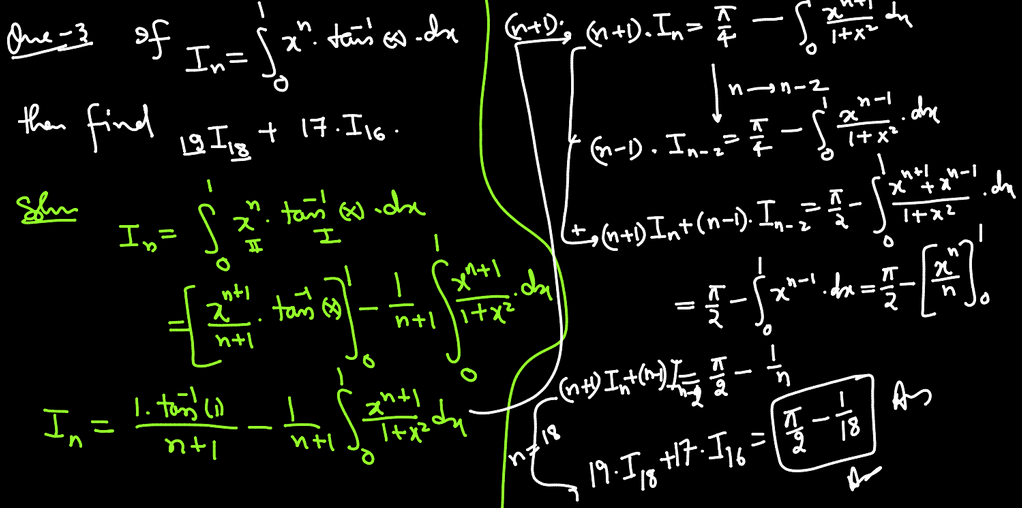 Que-3 If Iₙ = ∫₀¹ xⁿ · tan⁻¹(x) · dx
then find 19 I₁₈ + 17 · I₁₆ .
Soln
Iₙ = ∫₀¹ xⁿ · tan⁻¹(x) · dx
II I
= [xⁿ⁺¹/(n+1) · tan⁻¹(x)]₀¹ − 1/(n+1) ∫₀¹ xⁿ⁺¹/(1+x²) · dx
Iₙ = 1 · tan⁻¹(1)/(n+1) − 1/(n+1) ∫₀¹ xⁿ⁺¹/(1+x²) dx
(n+1) · (n+1) · Iₙ = π/4 − ∫₀¹ xⁿ⁺¹/(1+x²) dx
n → n−2
(n−1) · Iₙ₋₂ = π/4 − ∫₀¹ xⁿ⁻¹/(1+x²) · dx
+ (n+1) Iₙ + (n−1) · Iₙ₋₂ = π/2 − ∫₀¹ (xⁿ⁺¹ + xⁿ⁻¹)/(1+x²) · dx
= π/2 − ∫₀¹ xⁿ⁻¹ · dx = π/2 − [xⁿ/n]₀¹
(n+1) Iₙ + (n−1) Iₙ₋₂ = π/2 − 1/n
n = 18
19 · I₁₈ + 17 · I₁₆ = π/2 − 1/18 Ans
Ans